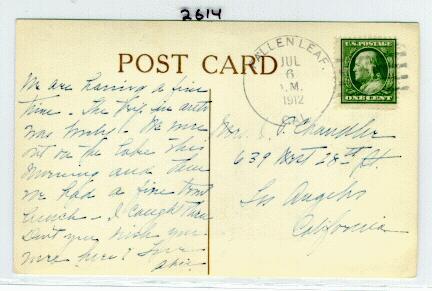 2614
POST CARD
ALLEN LEAF.
JUL
6
A.M.
1912
U.S. POSTAGE
ONE CENT
We are having a fine
time. The trip in auto
was
We were
out on the lake this
morning and then
we had a fine
lunch - I caught three
Don't you wish you
were here? Love
Mrs. Chandler
639 West 28th St.
Los Angeles
California